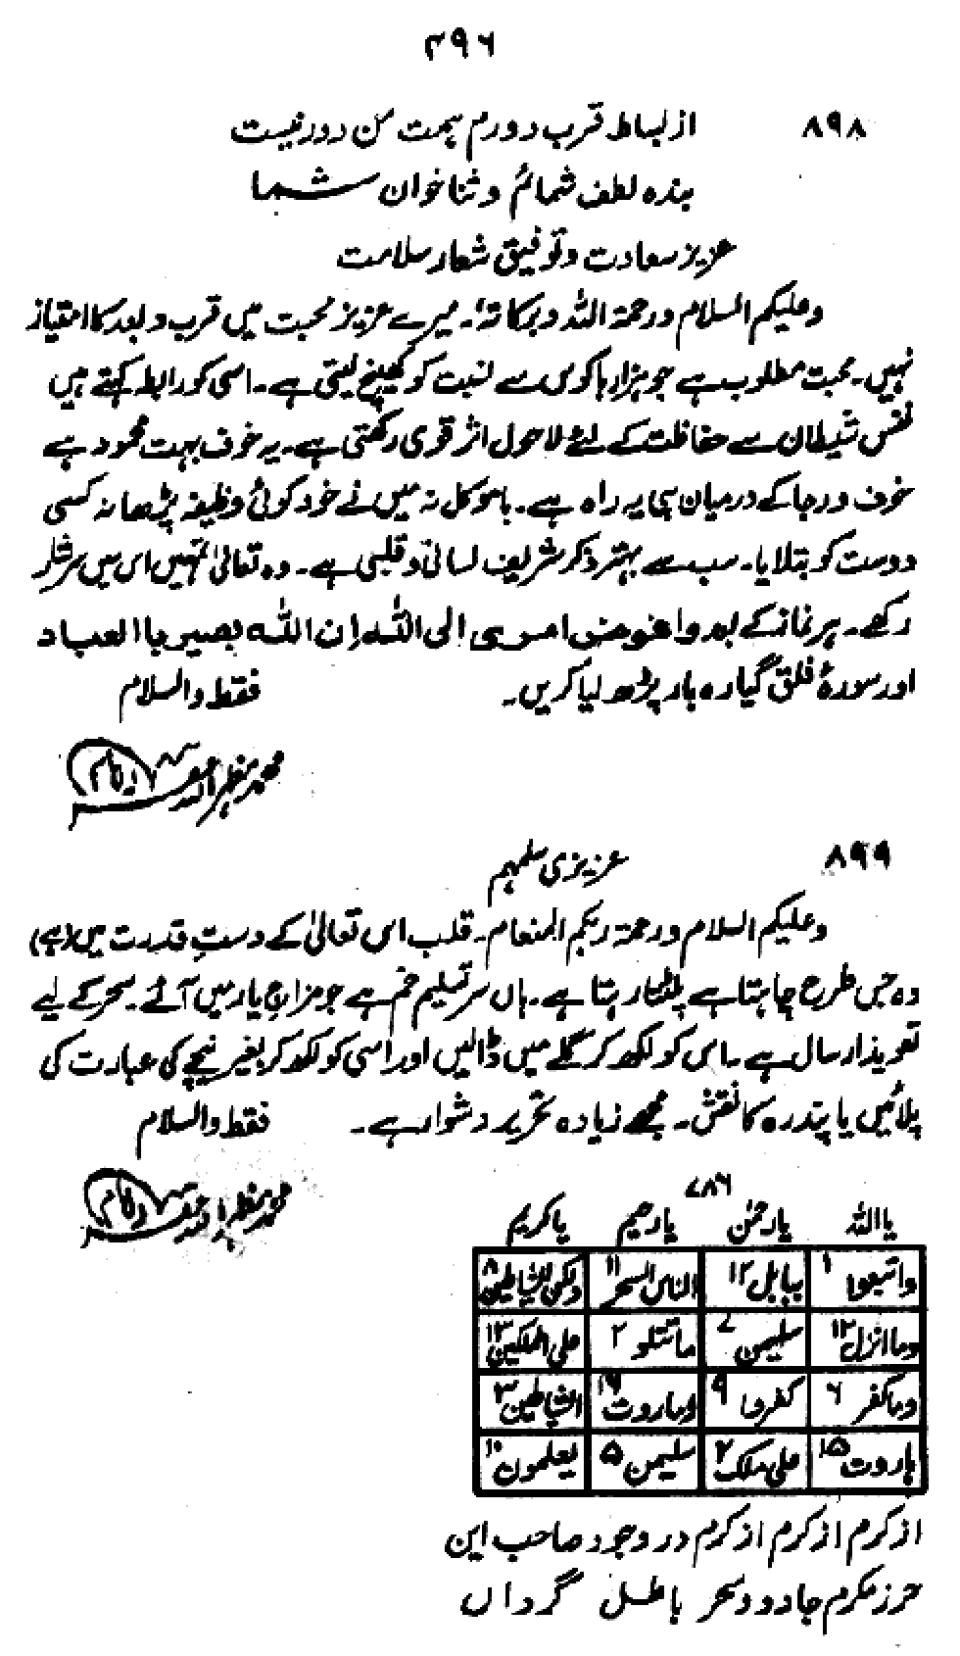 ۴۹۶
۸۹۸ از بساط قرب دورم ہمت من دور نیست
بندہ لطف شمائم و ثنا خوان شما
عزیز سعادت و توفیق شعار سلامت
وعلیکم السلام ورحمۃ اللہ وبرکاتہٗ۔ میرے عزیز محبت میں قرب و بعد کا امتیاز
نہیں۔ محبت مطلوب ہے جو ہزارہا کوس سے نسبت کو کھینچ لیتی ہے۔ اسی کو رابطہ کہتے ہیں
نفس شیطان سے حفاظت کے لئے لاحول اثر قوی رکھتی ہے۔ یہ خوف بہت محمود ہے
خوف و رجا کے درمیان ہی یہ راہ ہے۔ باموکل نہ میں نے خود کوئی وظیفہ پڑھا نہ کسی
دوست کو بتلایا۔ سب سے بہتر ذکر شریف لسانی و قلبی ہے۔ وہ تعالیٰ تمہیں اس میں سرشار
رکھے۔ ہر نماز کے بعد وافوض امری الی اللہ ان اللہ بصیر باالعباد
اور سورۂ فلق گیارہ بار پڑھ لیا کریں۔ فقط والسلام
محمد مظہر اللہ
۸۹۹ عزیزی سلمہم
وعلیکم السلام ورحمۃ ربکم المنعام۔ قلب اس تعالیٰ کے دستِ قدرت میں (ہے)
وہ جس طرح چاہتا ہے پلٹتا رہتا ہے۔ ہاں سر تسلیم خم ہے جو مزاجِ یار میں آئے۔ سحر کے لیے
تعویذ ارسال ہے۔ اس کو لکھ کر گلے میں ڈالیں اور اسی کو لکھ کر بغیر نیچے کی عبارت کی
پلائیں یا پندرہ کا نقش۔ مجھے زیادہ تحریر دشوار ہے۔ فقط والسلام
محمد مظہر اللہ
۷۸۶
یا اللہ یا رحمٰن یا رحیم یا کریم
واتبعوا ۱ ببابل ۱۲ الناس السحر ۱۱ ولکن الشیاطین ۸
وما انزل ۱۲ سلیمن ۷ ما تتلو ۲ علی الملکین ۱۳
وما کفر ۶ کفروا ۹ وماروت ۱۶ الشیاطین ۳
ہاروت ۱۵ علی ملک ۲ سلیمن ۵ یعلمون ۱۰
از کرم از کرم از کرم در وجود صاحب این
حرز مکرم جادو و سحر باطل گرداں